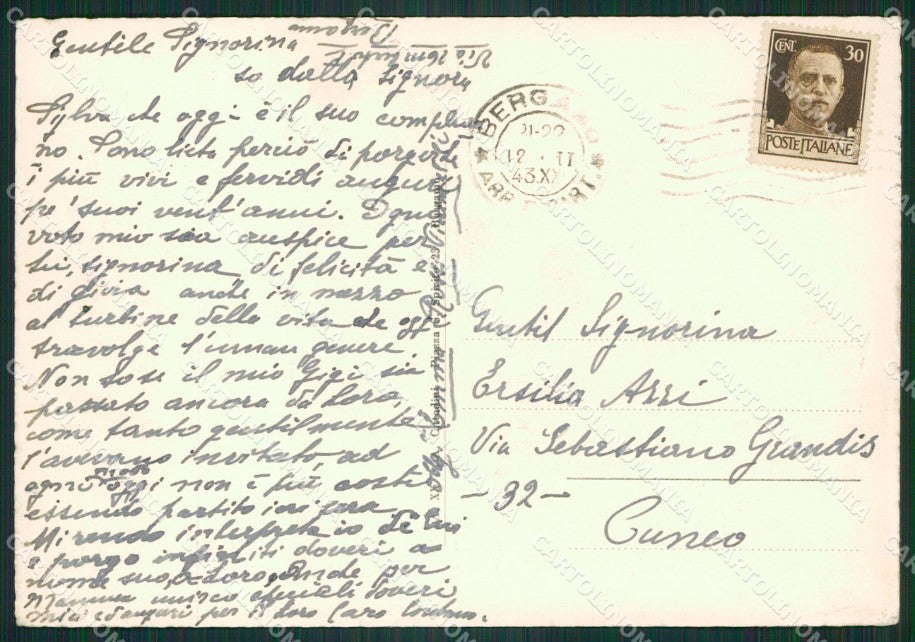 Gentile Signorina
so dalla Signora
Sylva che oggi è il suo complean
no. Sono lieto perciò di porgerle
i più vivi e fervidi auguri
pe' suoi vent'anni. Ogni
voto mio sia auspice per
lei, signorina di felicità e
di gioia anche in mezzo
al turbine della vita che oggi
travolge l'uman genere
Non so se il mio Gigi sia
passato ancora da Loro,
come tanto gentilmente
l'avevano invitato ad
ogni modo oggi non è più costì
essendo partito ieri sera
Mi rendo interprete io de lui
e porgo infiniti doveri a
nome suo, a Loro. Anche per
Mamma unisco speciali doveri
miei ed auguri per il loro caro
BERGAMO
21-22
12 II
43 XXI
CENT. 30
POSTE ITALIANE
Gentil Signorina
Ersilia Azzi
Via Sebastiano Grandis
- 32 -
Cuneo
CARTOLINOMANIA